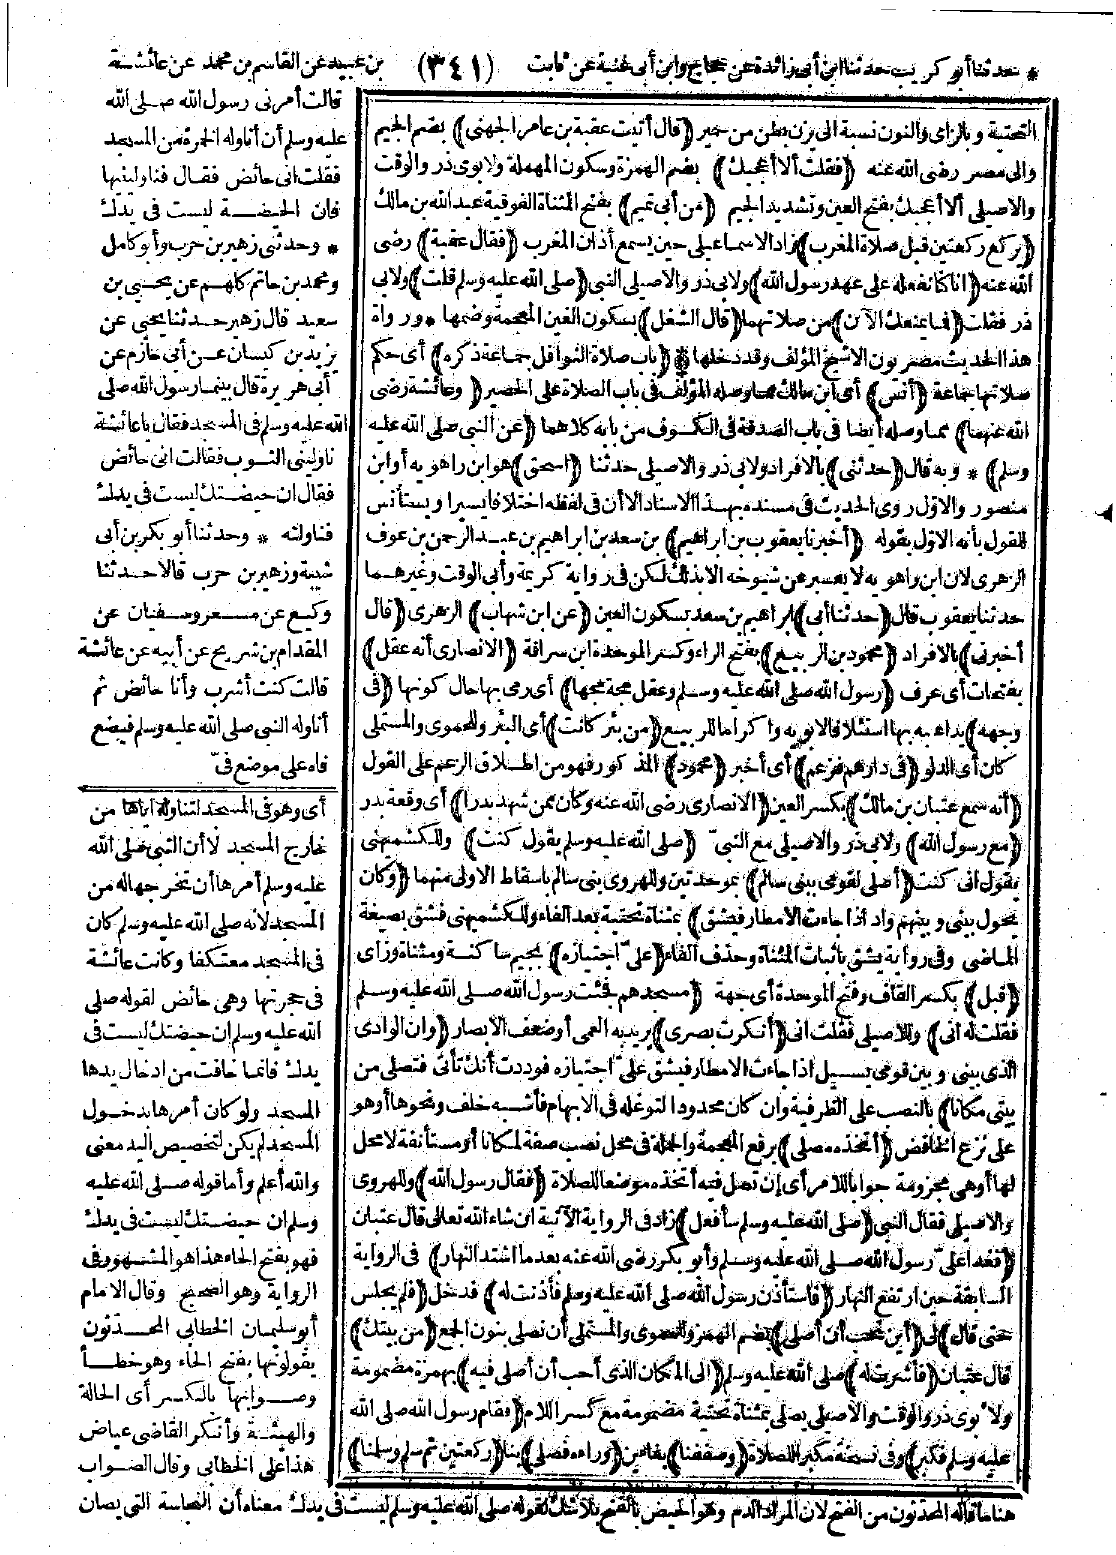 * حدثنا أبو كريب حدثنا ابن أبى زائدة عن حجاج وابن أبى غنية عن ثابت (٣٤١) بن عبيد عن القاسم بن محمد عن عائشة
قالت أمرنى رسول الله صلى الله
عليه وسلم أن أناوله الخمرة من المسجد
فقلت انى حائض فقال فناولينها
فان الحيضة ليست فى يدك
* وحدثنى زهير بن حرب وأبو كامل
ومحمد بن حاتم كلهم عن يحيى بن
سعيد قال زهير حدثنا يحيى عن
يزيد بن كيسان عن أبى حازم عن
أبى هريرة قال بينما رسول الله صلى
الله عليه وسلم فى المسجد فقال يا عائشة
ناولينى الثوب فقالت انى حائض
فقال ان حيضتك ليست فى يدك
فناولته * وحدثنا أبو بكر بن أبى
شيبة وزهير بن حرب قالا حدثنا
وكيع عن مسعر وسفيان عن
المقدام بن شريح عن أبيه عن عائشة
قالت كنت أشرب وأنا حائض ثم
أناوله النبى صلى الله عليه وسلم فيضع
فاه على موضع فىّ
أى وهو فى المسجد لتناوله اياها من
خارج المسجد لا أن النبى صلى الله
عليه وسلم أمرها أن تخرجها له من
المسجد لانه صلى الله عليه وسلم كان
فى المسجد معتكفا وكانت عائشة
فى حجرتها وهى حائض لقوله صلى
الله عليه وسلم ان حيضتك ليست فى
يدك فانما خافت من ادخال يدها
المسجد ولو كان أمرها بدخول
المسجد لم يكن لتخصيص اليد معنى
والله أعلم وأما قوله صلى الله عليه
وسلم ان حيضتك ليست فى يدك
فهو بفتح الحاء هذا هو المشهور فى
الرواية وهو الصحيح وقال الامام
أبو سليمان الخطابى المحدثون
يقولونها بفتح الحاء وهو خطأ
وصوابها بالكسر أى الحالة
والهيئة وأنكر القاضى عياض
هذا على الخطابى وقال الصواب
هنا ما قاله المحدثون من الفتح لان المراد الدم وهو الحيض بالفتح بلا شك لقوله صلى الله عليه وسلم ليست فى يدك معناه أن النجاسة التى يصان
التحتية وبالزاى والنون نسبة الى يزن بطن من حمير (قال أتيت عقبة بن عامر الجهنى) بضم الجيم
والى مصر رضى الله عنه (فقلت ألا أعجبك) بضم الهمزة وسكون المهملة ولابوى ذر والوقت
والاصيلى ألا أعجبك بفتح العين وتشديد الجيم (من أبى تميم) بفتح المثناة الفوقية عبد الله بن مالك
(يركع ركعتين قبل صلاة المغرب) زاد الاسماعيلى حين يسمع أذان المغرب (فقال عقبة) رضى
الله عنه (انا كنا نفعله على عهد رسول الله) ولابى ذر والاصيلى النبى (صلى الله عليه وسلم قلت) ولابى
ذر فقلت (فما يمنعك الآن) من صلاتهما (قال الشغل) بسكون الغين المعجمة وضمها * ورواة
هذا الحديث مصريون الا شيخ المؤلف وقد دخلها * (باب صلاة النوافل جماعة ذكره) أى حكم
صلاتها جماعة (أنس) أى ابن مالك مما وصله المؤلف فى باب الصلاة على الحصير (وعائشة رضى
الله عنهما) مما وصله أيضا فى باب الصدقة فى الكسوف من بابه كلاهما (عن النبى صلى الله عليه
وسلم) * وبه قال (حدثنى) بالافراد ولابى ذر والاصيلى حدثنا (اسحق) هو ابن راهويه أو ابن
منصور والاول روى الحديث فى مسنده بهذا الاسناد الا أن فى لفظه اختلافا يسيرا ويستأنس
للقول بأنه الاول بقوله (أخبرنا يعقوب بن ابراهيم) بن سعد بن ابراهيم بن عبد الرحمن بن عوف
الزهرى لان ابن راهويه لا يعبر عن شيوخه الا بذلك لكن فى رواية كريمة وأبى الوقت وغيرهما
حدثنا يعقوب قال (حدثنا أبى) ابراهيم بن سعد بسكون العين (عن ابن شهاب) الزهرى (قال
أخبرنى) بالافراد (محمود بن الربيع) بفتح الراء وكسر الموحدة ابن سراقة (الانصارى أنه عقل)
بفتحات أى عرف (رسول الله صلى الله عليه وسلم وعقل مجة مجها) أى رمى بها حال كونها (فى
وجهه) يداعبه بها استئلافا لابويه واكراما للربيع (من بئر كانت) أى البئر وللحموى والمستملى
كان أى الدلو (فى دارهم فزعم) أى أخبر (محمود) المذكور فهو من اطلاق الزعم على القول
(أنه سمع عتبان بن مالك) بكسر العين (الانصارى رضى الله عنه وكان ممن شهد بدرا) أى وقعة بدر
(مع رسول الله) ولابى ذر والاصيلى مع النبىّ (صلى الله عليه وسلم يقول كنت) وللكشميهنى
يقول انى كنت (أصلى لقومى ببنى سالم) بموحدتين وللهروى بنى سالم باسقاط الاولى منهما (وكان
يحول بينى وبينهم واد اذا جاءت الامطار فيشق) بمثناة تحتية بعد الفاء وللكشميهنى فشق بصيغة
الماضى وفى رواية يشق باثبات المثناة وحذف الفاء (علىّ اجتيازه) بجيم ساكنة ومثناة وزاى
(قبل) بكسر القاف وفتح الموحدة أى جهة (مسجدهم فجئت رسول الله صلى الله عليه وسلم
فقلت له انى) وللاصيلى فقلت انى (أنكرت بصرى) يريد به العمى أو ضعف الابصار (وان الوادى
الذى بينى وبين قومى يسيل اذا جاءت الامطار فيشق علىّ اجتيازه فوددت أنك تأتى فتصلى من
بيتى مكانا) بالنصب على الظرفية وان كان محدودا لتوغله فى الابهام فأشبه خلف ونحوها أو هو
على نزع الخافض (أتخذه مصلى) برفع المعجمة والجملة فى محل نصب صفة لمكانا أو مستأنفة لا محل
لها أو هى مجزومة جوابا للامر أى إن تصل فيه أتخذه موضعا للصلاة (فقال رسول الله) وللهروى
والاصيلى فقال النبى (صلى الله عليه وسلم سأفعل) زاد فى الرواية الآتية ان شاء الله تعالى قال عتبان
(فغدا علىّ رسول الله صلى الله عليه وسلم وأبو بكر رضى الله عنه بعد ما اشتد النهار) فى الرواية
السابقة حين ارتفع النهار (فاستأذن رسول الله صلى الله عليه وسلم فأذنت له) فدخل (فلم يجلس
حتى قال) لى (أين تحب أن أصلى) بضم الهمزة وللحموى والمستملى أن نصلى بنون الجمع (من بيتك)
قال عتبان (فأشرت له) صلى الله عليه وسلم (الى المكان الذى أحب أن أصلى فيه) بهمزة مضمومة
ولابوى ذر والوقت والاصيلى يصلى بمثناة تحتية مضمومة مع كسر اللام (فقام رسول الله صلى الله
عليه وسلم فكبر) وفى نسخة مكبرا للصلاة (وصففنا) بفاءين (وراءه فصلى) بنا (ركعتين ثم سلم وسلمنا)